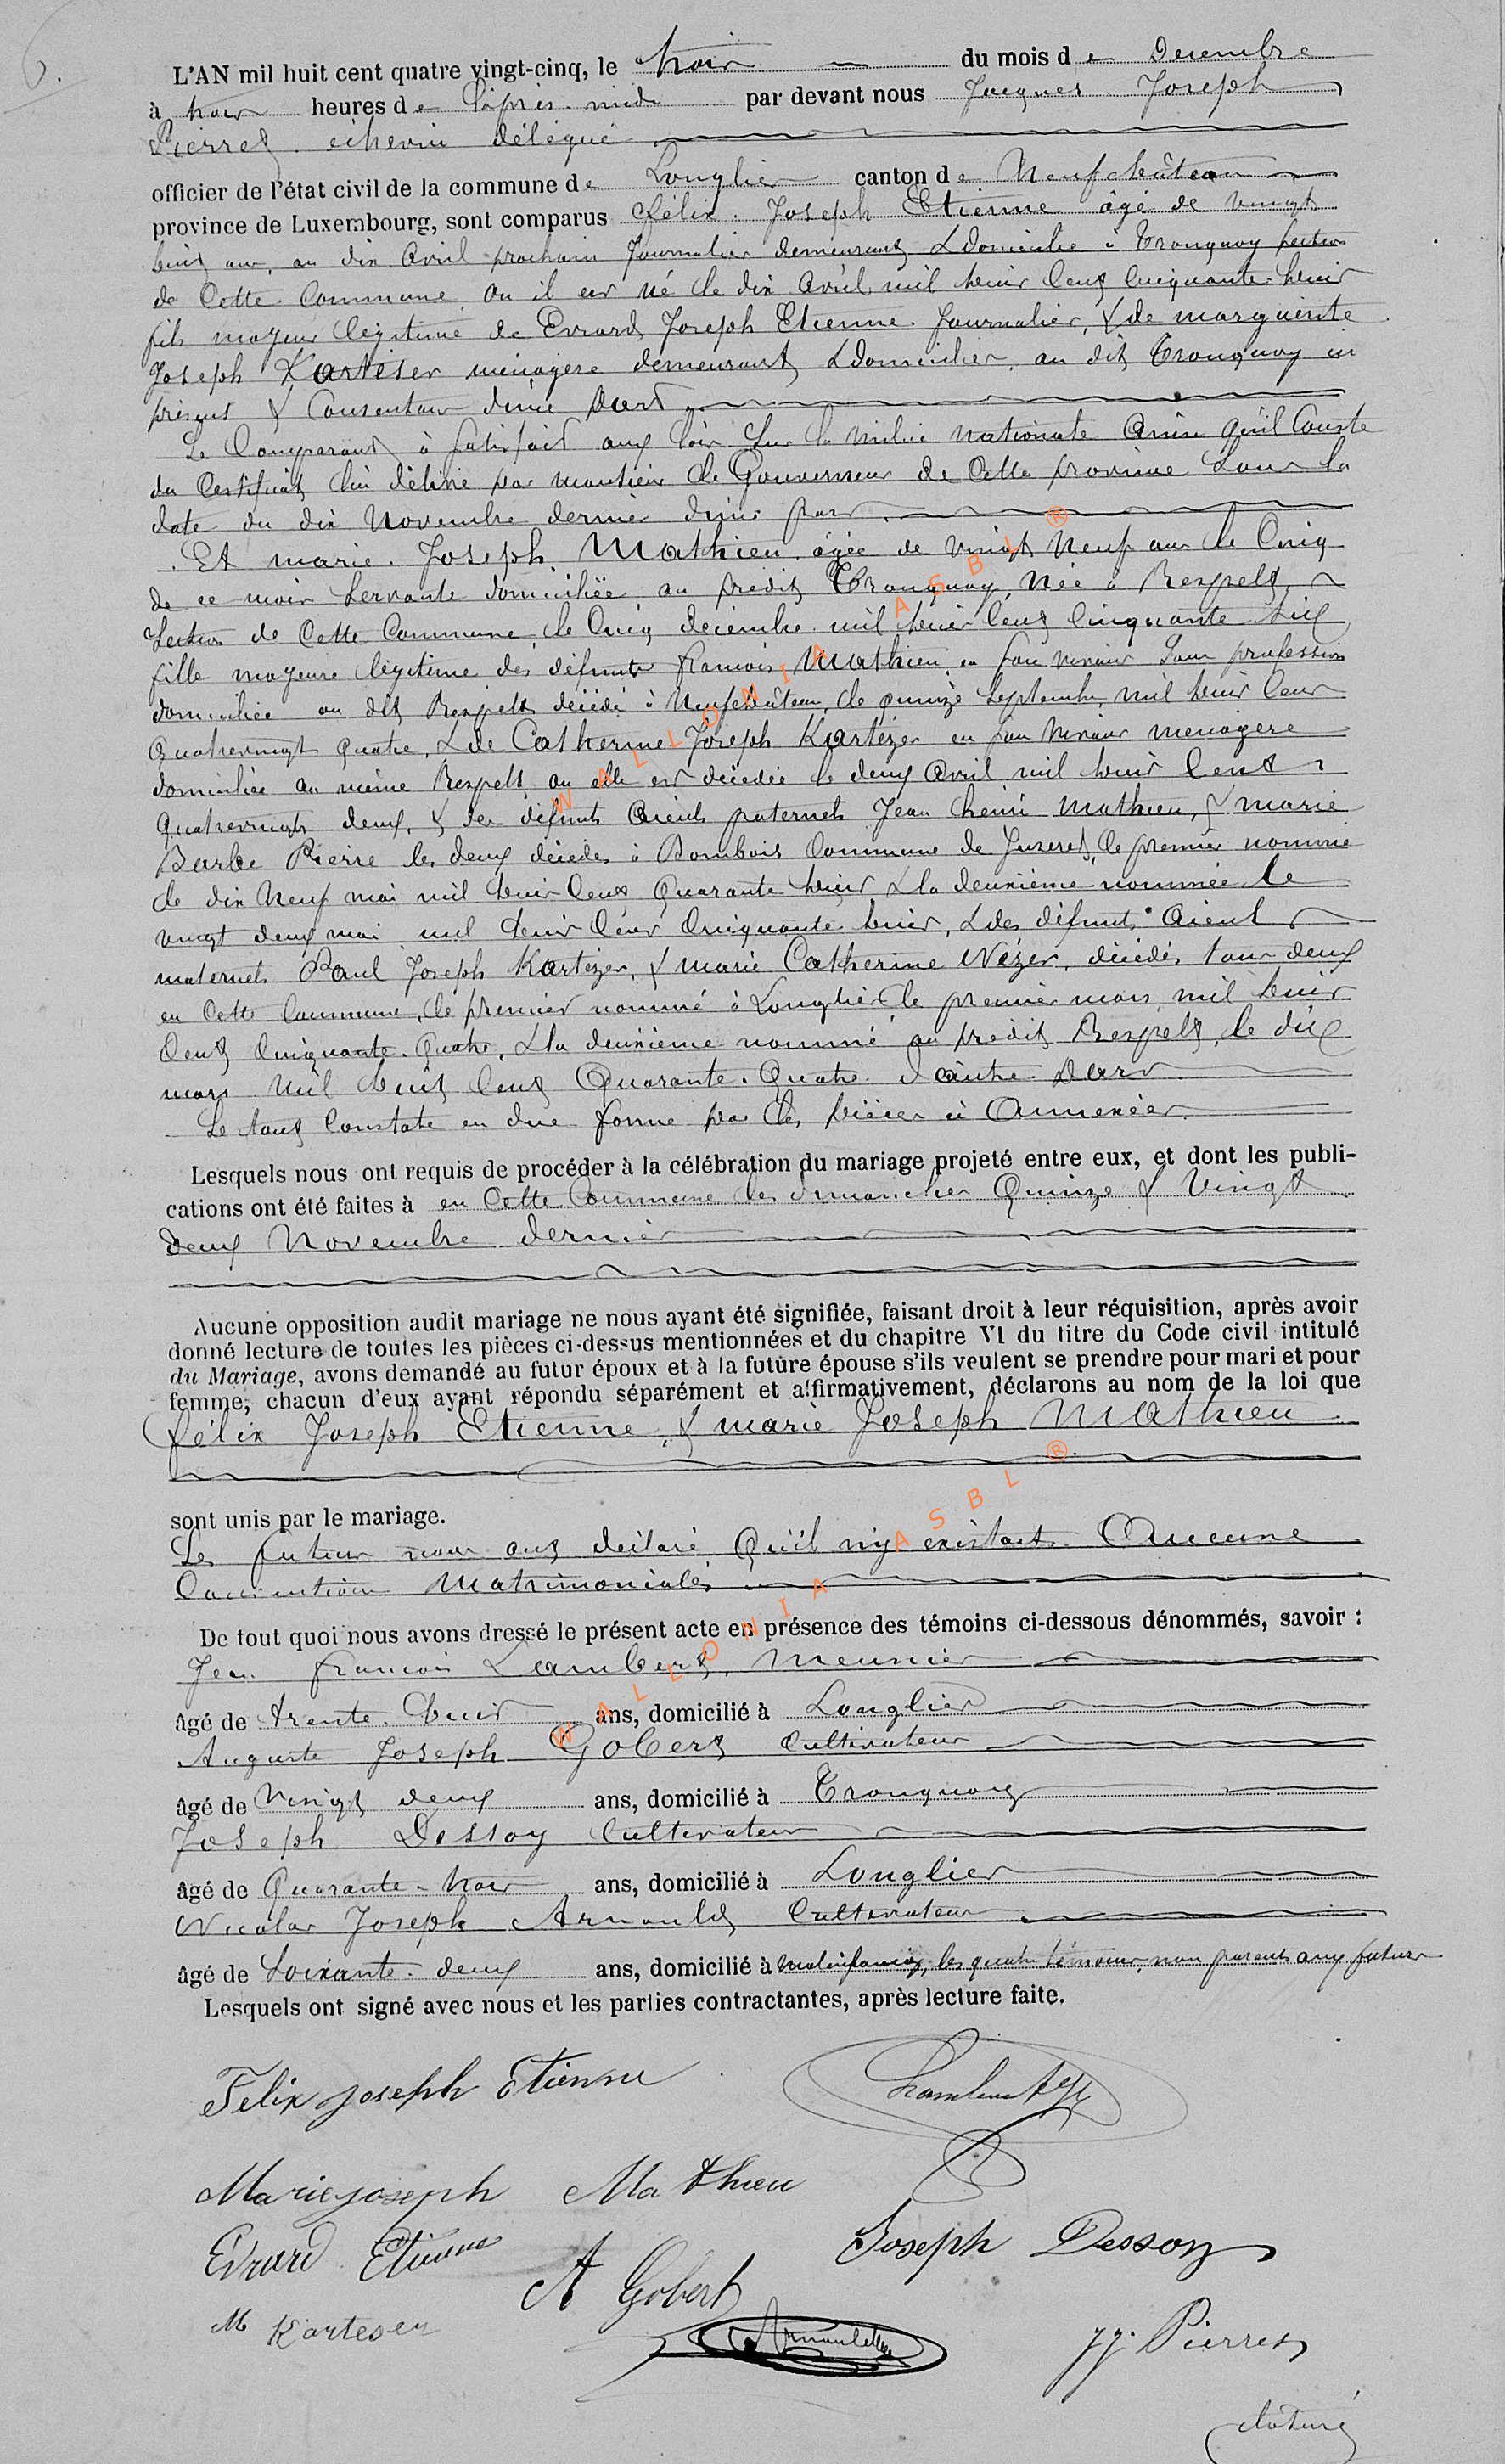 6.
L'AN mil huit cent quatre vingt-cinq, le trois du mois de Decembre
à trois heures de l'après-midi par devant nous Jacques Joseph
Pierret échevin délégué
officier de l'état civil de la commune de Longlier canton de Neufchâteau
province de Luxembourg, sont comparus félix Joseph Etienne âgé de vingt
huit ans, au dix Avril prochain Journalier demeurant & Domicilié à Tronquoy section
de Cette Commune où il est né le dix Avril mil huit Cent cinquante-huit
fils majeur légitime de Evrard Joseph Etienne Journalier, & de marguerite
Joseph Karteser ménagère demeurant & domiciliés au dit Tronquoy ici
présents & Consentants d'une part
Le Comparant à satisfait aux lois sur la milice nationale Ainsi qu'il Conste
du Certificat lui délivré par monsieur le Gouverneur de Cette province sous la
date du dix Novembre dernier d'une part.
Et marie Joseph Mathieu âgée de vingt Neuf ans le Cinq
de ce mois Servante domiciliée au predit Tronquoy, Née à Respelt,
Section de Cette Commune le Cinq décembre mil huit Cent Cinquante six
fille majeure légitime des défunts francois Mathieu en son vivant Sans profession
domiciliée au dit Respelt décédé à Neufchâteau, le quinze Septembre mil huit Cent
Quatrevingt quatre, & de Catherine Joseph Kartézer en son vivant menagère
domiciliée au même Respelt ou elle est décédée le deux Avril mil huit Cent
quatrevingt deux, & des défunts Aieuls paternels Jean henri Mathieu, & marie
Barbe Pierre les deux décédés à Bombois Commune de Juseret, le premier nommé
le dix Neuf mai mil huit Cent Quarante huit & la deuxième nommée le
vingt deux mai mil huit Cent Cinquante huit, & des défunts Aieul
maternels Paul Joseph Kartézer, & marie Catherine Nézer, décédés tous deux
en Cette Commune, le premier nommé à Longlier le premier mars mil huit
Cent Cinquante Quatre, & la deuxième nommé au predit Respelt, le dix
mars mil huit Cent Quarante Quatre d'autre part
Le tout Constaté en due forme par les pièces ci Annexées.
Lesquels nous ont requis de procéder à la célébration du mariage projeté entre eux, et dont les publi-
cations ont été faites à en Cette Commune les dimanches Quinze & Vingt
deux Novembre dernier
Aucune opposition audit mariage ne nous ayant été signifiée, faisant droit à leur réquisition, après avoir
donné lecture de toutes les pièces ci-dessus mentionnées et du chapitre VI du titre du Code civil intitulé
du Mariage, avons demandé au futur époux et à la future épouse s'ils veulent se prendre pour mari et pour
femme; chacun d'eux ayant répondu séparément et affirmativement, déclarons au nom de la loi que
félix Joseph Etienne, & marie Joseph Mathieu
sont unis par le mariage.
Les futurs nous ont déclaré Qu'il n'y existait Aucune
Convention Matrimoniale
De tout quoi nous avons dressé le présent acte en présence des témoins ci-dessous dénommés, savoir :
Jean francois Lambert, meunier
âgé de trente-huit ans, domicilié à Longlier
Auguste Joseph Gobert Cultivateur
âgé de vingt deux ans, domicilié à Tronquoy
Joseph Dessoy Cultivateur
âgé de Quarante-trois ans, domicilié à Longlier
Nicolas Joseph Arnould Cultivateur
âgé de Soixante-deux ans, domicilié à Molinfaing, les quatre témoins, non parents aux futurs
Lesquels ont signé avec nous et les parties contractantes, après lecture faite.
Felix joseph Etienne
Marie joseph Mathieu
Evrard Etienne
Joseph Dessoy
A Gobert
M Karteser
Arnould
JJ. Pierret
cloturé
WALLONIA ASBL ®
WALLONIA ASBL ®